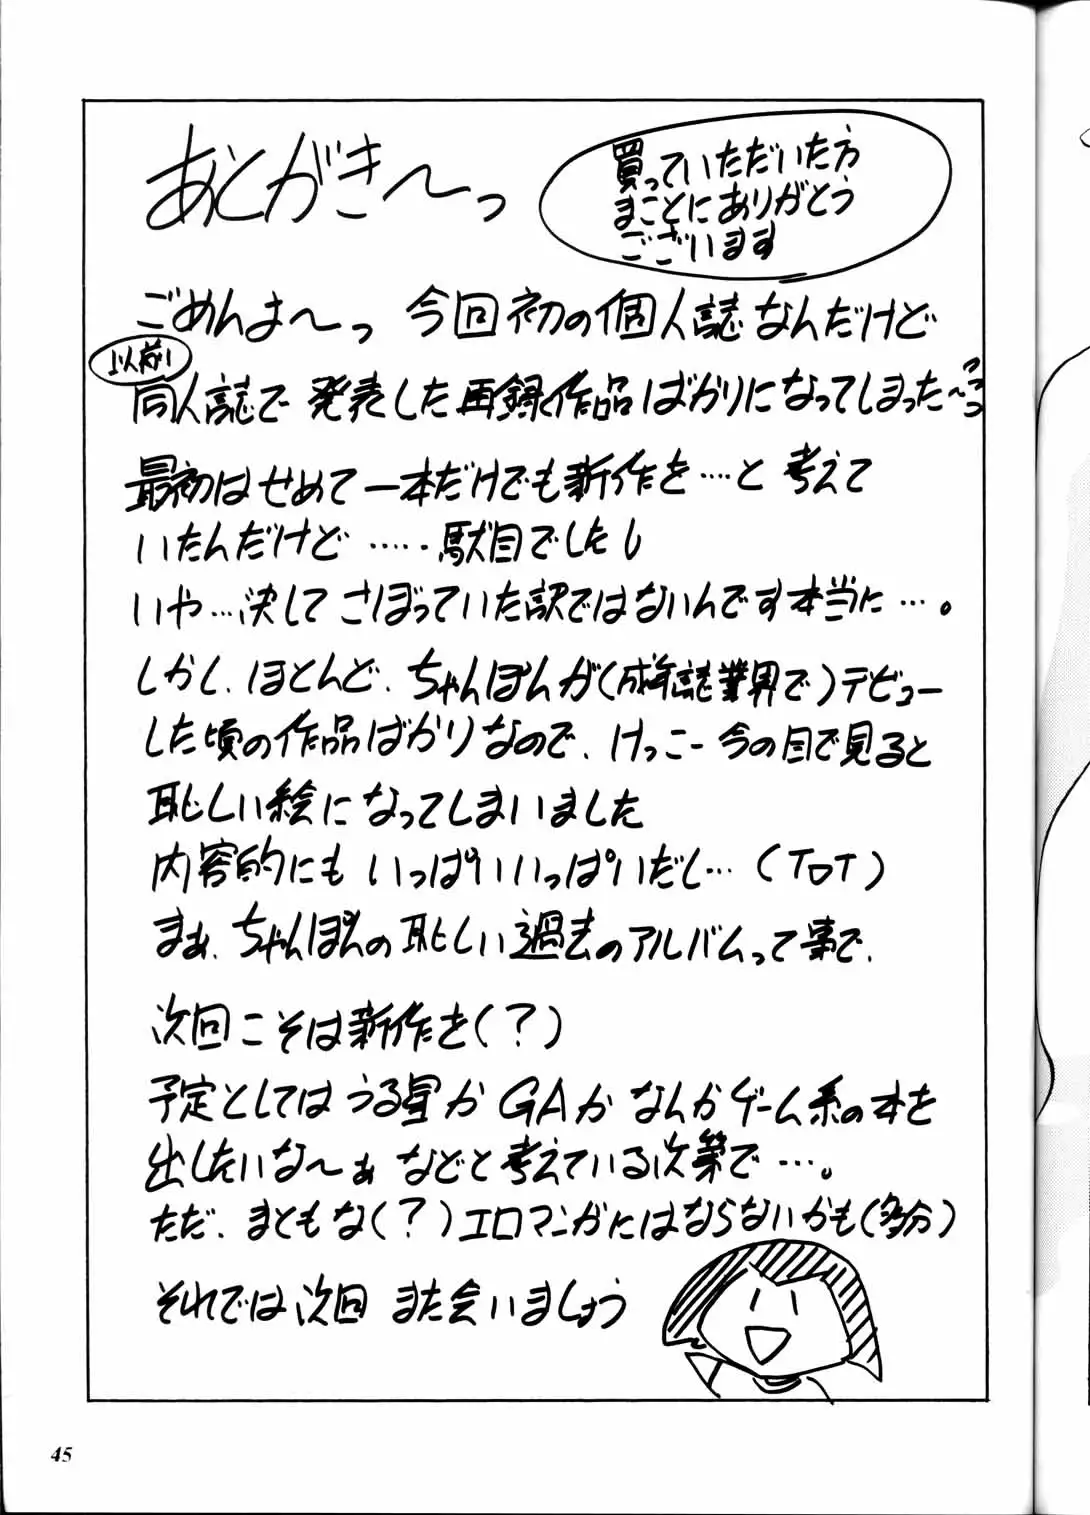 あとがき〜っ
買っていただいた方
まことにありがとう
ございます
ごめんよ〜っ 今回初の個人誌なんだけど
以前
同人誌で発表した再録作品ばかりになってしまった〜っっっ
最初はせめて一本だけでも新作を‥‥と考えて
いたんだけど‥‥‥駄目でしたし
いや‥‥決してさぼっていた訳ではないんです本当に‥‥。
しかし、ほとんど、ちゃんぽんが(成年誌業界で)デビュー
した頃の作品ばかりなので、けっこー今の目で見ると
恥しい絵になってしまいました
内容的にもいっぱいいっぱいだし‥‥(TロT)
まぁ、ちゃんぽんの恥しい過去のアルバムって事で、
次回こそは新作を(?)
予定としてはうる星かGAかなんかゲーム系の本を
出したいな〜ぁなどと考えている次第で‥‥。
ただ、まともな(?)エロマンガにはならないかも(多分)
それでは次回 また会いましょう
45